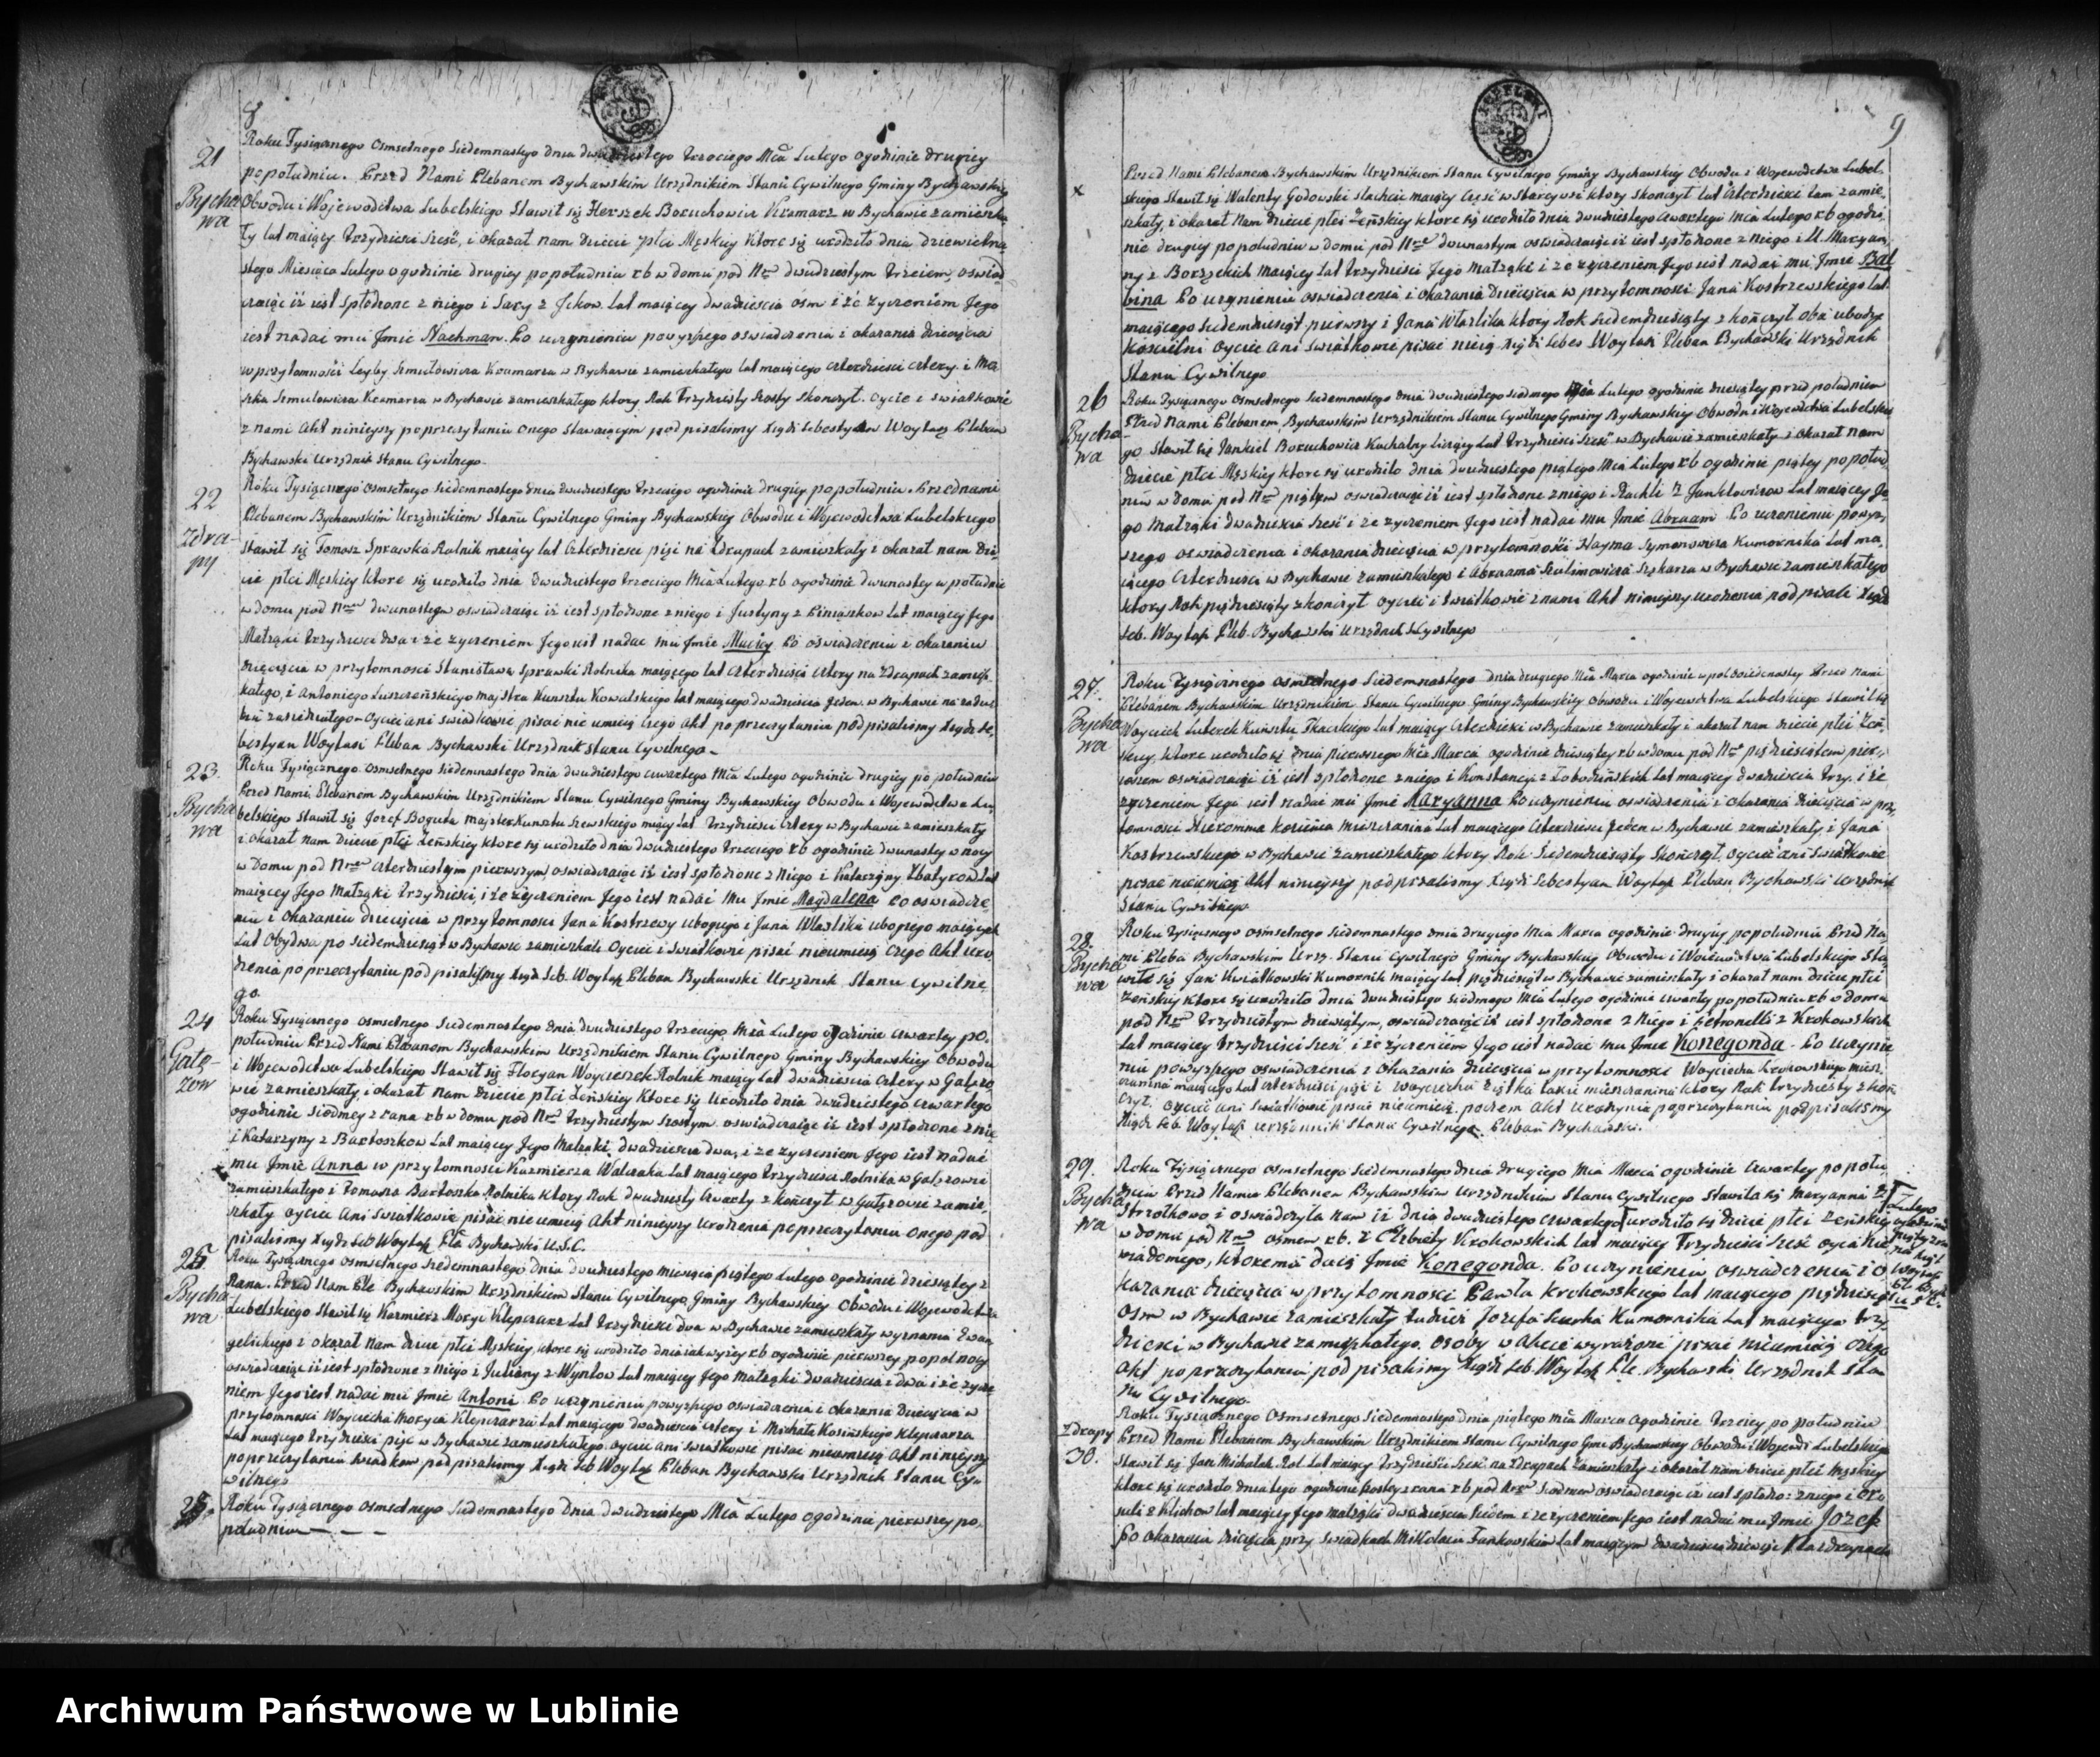 8
21
Bychawa
Roku Tysiącznego Osmsetnego Siedemnastego dnia dwudziestego trzeciego Mca Lutego o godzinie drugiey
popołudniu. Przed Nami Plebanem Bychawskim Urzędnikiem Stanu Cywilnego Gminy Bychawskiey
Obwodu i Wojewodztwa Lubelskiego Stawił się Herszek Boruchowicz Kramarz w Bychawie zamieszka
ły lat maiący trzydzieści sześć, i okazał nam dziecie płci Męskiey które się urodziło dnia dziewietna
stego Miesiąca Lutego o godzinie drugiey popołudniu rb w domu pod Nrem dwudziestym trzeciem, oswiad
czaiąc iż iest spłodzone z niego i Sary z Jckow. lat maiącey dwadzieścia ośm i że życzeniem Jego
iest nadać mu Jmie Nachman. Po uczynieniu powyższego oswiadczenia i okazania dziecięcia
w przytomności Leyby Szmulowicza Kramarza w Bychawie zamieszkałego lat maiącego czterdzieści cztery i
Szmulowicza Kramarza w Bychawie zamieszkałego ktory Rok Trzydziesty szosty skończył. oycie i swiadkowie
z nami Akt ninieyszy po przeczytaniu onego stawaiącym podpisalismy Xiądz Sebestyan Woytasz Pleban
Bychawski Urzędnik Stanu Cywilnego
22
Zdrapy
Roku Tysiącznego osmsetnego siedemnastego dnia dwudziestego trzeciego o godzinie drugiey popołudniu. Przed nami
Plebanem Bychawskim Urzędnikiem Stanu Cywilnego Gminy Bychawskiey Obwodu i Wojewodztwa Lubelskiego
stawił się Tomasz Sprawka Rolnik maiący lat Czterdzieści pięć na Zdrapach zamieszkały i okazał nam dzie
cie płci Męskiey ktore się urodziło dnia dwudziestego trzeciego Mca Lutego rb o godzinie dwunastey w południe
w domu pod Nrem dwunastym oswiadczaiąc iż iest spłodzone z niego i Justyny z lat maiącey Jego
Małżąki trzydzieści dwa i że życzeniem Jego iest nadać mu Jmie Maciey Po oswiadczeniu i okazaniu
dziecięcia w przytomności Stanisława Sprawki Rolnika maiącego lat czterdzieści cztery na Zdrapach zamiesz
kałego, i Antoniego Luszczeńskiego maystra Kunsztu Kowalskiego lat maiącego dwadzieścia jeden w Bychawie
Oycieć ani swiadkowie pisać nie umieią czego Akt po przeczytaniu podpisalismy Xiądz Se
bestyan Woytasz Pleban Bychawski Urzędnik Stanu Cywilnego
23
Bychawa
Roku Tysiącznego osmsetnego siedemnastego dnia dwudziestego czwartego Mca Lutego o godzinie drugiey po południu
Przed Nami Plebanem Bychawskim Urzędnikiem Stanu Cywilnego Gminy Bychawskiey Obwodu i Wojewodztwa Lu
belskiego Stawił się Jozef Boguta mayster Kunsztu Szewskiego maiący lat trzydzieści cztery w Bychawie zamieszkały
i okazał nam dziecie płci Zeńskiey ktore się urodziło dnia dwudziestego trzeciego rb o godzinie dwunastey w nocy
w Domu pod Nrem czterdziestym pierwszym oswiadczaiąc iż iest spłodzone z Niego i Katarzyny lat
maiącey Jego Małżąki trzydzieści, i że życzeniem Jego iest nadać Mu Jmie Magdalena Po oswiadcze
niu i okazaniu dziecięcia w przytomności Jana Kostrzewy ubogiego i Jana Wlazlika ubogiego maiących
lat Obydwa po siedemdziesiąt w Bychawie zamieszkali Oycieć i Swiadkowie pisać nieumieią czego Akt uro
dzenia po przeczytaniu podpisalismy Xiądz Seb. Woytasz Pleban Bychawski Urzędnik Stanu Cywilne
go.
24
Gałęzow
Roku Tysiącznego osmsetnego siedemnastego dnia dwudziestego trzeciego Mca Lutego o godzinie czwartey po
południu Przed Nami Plebanem Bychawskim Urzędnikiem Stanu Cywilnego Gminy Bychawskiey Obwodu
i Wojewodztwa Lubelskiego Stawił się Floryan Woycieszek Rolnik maiący lat dwadzieścia cztery w Gałęzo
wie zamieszkały, i okazał Nam dziecie płci Zeńskiey Ktore się urodziło dnia dwudziestego czwartego
o godzinie siódmey z rana rb w domu pod Nrem trzydziestym szostym oswiadczaiąc iż iest spłodzone z nie
i Katarzyny z Bartoszkow lat maiącey Jego Małżąki dwadzieścia dwa, i że życzeniem Jego iest nadać
mu Jmie Anna w przytomności Kazmierza Walczaka lat maiącego trzydzieści Rolnika w Gałęzowie
zamieszkałego i Tomasza Bartoszka Rolnika ktory Rok dwudziesty czwarty skończył w Gałęzowie zamie
szkały oycieć ani swiadkowie pisać nie umieią Akt ninieyszy urodzenia po przeczytaniu onego pod
pisalismy Xiądz Seb Woytasz Pla Bychawski U.S.C.
25
Bychawa
Roku Tysiącznego osmsetnego Siedemnastego dnia dwudziestego piątego Lutego o godzinie dziesiątey z
Rana. Przed Nam Ple Bychawskim Urzędnikiem Stanu Cywilnego Gminy Bychawskiey Obwodu i Wojewodztwa
Lubelskiego stawił się Kazmierz Moryc Klepczarz lat trzydzieści dwa w Bychawie zamieszkały wyznania Ewan
gelickiego i okazał nam dziecie płci Męskiey, ktore się urodziło dnia iak wyżey rb o godzinie pierwszey popołnocy
oswiadczaiąc iż iest spłodzone z niego i Julianny z Wyntow lat maiącey Jego Małżąki dwadzieścia i dwa i że życze
niem Jego iest nadać mu Jmie Antoni Po uczynieniu powyższego oswiadczenia i okazania dziecięcia w
przytomności Woyciecha Moryca Klepczarza lat maiącego dwadzieścia cztery i Michała Kosińskiego Klepczarza
lat maiącego trzydzieści pięć w Bychawie zamieszkałego oycieć ani swiadkowie pisać nieumieią Akt ninieyszy
po przeczytaniu swiadkom podpisalismy Xiądz Seb Woytasz Pleban Bychawski Urzędnik Stanu Cy
wilnego
25.
Roku Tysiącznego osmsetnego Siedemnastego dnia dwudziestego Mca Lutego o godzinie pierwszey po
południu
9
x
Przed Nami Plebanem Bychawskim Urzędnikiem Stanu Cywilnego Gminy Bychawskiey Obwodu i Wojewodztwa Lubel
skiego Stawił się Walenty Godowski slachcic maiący Część w Starcyosi ktory skonczył lat Czterdzieści tam zamie
szkały, i okazał Nam dziecie płci Zeńskiey ktore się urodziło dnia dwudziestego czwartego Mca Lutego rb o godzi
nie drugiey po południu w domu pod Nrem dwunastym oswiadczaiąc iż iest spłodzone z Niego i M. Maryan
ny z Borzęckich maiącey lat trzydzieści Jego Małżąki i że życzeniem Jego iest nadać mu Jmie Bal
bina Po uczynieniu oswiadczenia i okazania dziecięcia w przytomności Jana Kostrzewskiego lat
maiącego siedemdziesiąt pierwszy i Jana Wlazlika ktory Rok siedemdziesiąty skończył oba ubodzy
Kościelni Oycieć ani swiadkowie pisać nieią Xiądz Sebes Woytasz Pleban Bychawski Urzędnik
Stanu Cywilnego
26
Bychawa
Roku Tysiącznego osmsetnego siedemnastego dnia dwudziestego siodmego Mca Lutego o godzinie dziesiątey przed południem
Przed Nami Plebanem Bychawskim Urzędnikiem Stanu Cywilnego Gminy Bychawskiey Obwodu i Wojewodztwa Lubelskie
go Stawił się Jankiel Boruchowicz Kuchalny Liczący lat trzydzieści sześć w Bychawie zamieszkały i okazał nam
dziecie płci Męskiey ktore się urodziło dnia dwudziestego piątego Mca Lutego rb o godzinie piątey popołud
niu w domu pod Nrem piątym oswiadczaiąc iż iest spłodzone z niego i Ruchli z Janklowiczow lat maiącey Je
go Małżąki dwadzieścia sześć i że życzeniem Jego iest nadać mu Jmie Abraam Po uczenieniu powyż
szego oswiadczenia i okazania dziecięcia w przytomności Hayma Szymonowicza Kumornika lat ma
iącego czterdzieści w Bychawie zamieszkałego i Abraama Szulimowicza Szkarza w Bychawie zamieszkałego
ktory Rok pięcdziesiąty zkończył oycieć i swiatkowie z nami Akt ninieyszy urodzenia podpisali Xiądz
Seb. Woytasz Pleb. Bychawski Urzędnik S. Cywilnego
27.
Bychawa
Roku Tysiącznego osmsetnego siedemnastego dnia drugiego Mca Marca o godzinie w pół Przed Nami
Plebanem Bychawskim Urzędnikiem Stanu Cywilnego Gminy Bychawskiey Obwodu i Wojewodztwa Lubelskiego stawił się
Woyciech Luterek Kunsztu Tkackiego lat maiący czterdzieści w Bychawie zamieszkały i okazał nam dziecie płci Zeń
skiey, ktore urodziło się dnia Pierwszego Mca Marca o godzinie dziesiątey rb w domu pod Nrem pięcdziesiątem pier
wszem oswiadczaiąc iż iest spłodzone z niego i Konstancyi z Łobodzińskich lat maiącey dwadzieścia trzy i że
życzeniem Jego iest nadać mu Jmie Maryanna Po uczynieniu oswiadczenia i okazania dziecięcia w przy
tomności Hieronima mieszczanina lat maiącego czterdzieści jeden w Bychawie zamieszkały, i Jana
Kostrzewskiego w Bychawie zamieszkałego ktory Rok Siedemdziesiąty Skończył, oycieć ani swiadkowie
pisać nieumieią Akt ninieyszy podpisalismy Xiądz Sebestyan Woytasz Pleban Bychawski Urzędnik
Stanu Cywilnego
28.
Bychawa
Roku Tysiącznego osmsetnego Siedemnastego dnia drugiego Mca Marca o godzinie drugiey popołudniu Przed Na
mi Pleba Bychawskim Urzęd. Stanu Cywilnego Gminy Bychawskiey Obwodu i Wojewodztwa Lubelskiego Sta
wiłe się Jan Kwiatkowski Kumornik maiący lat pięcdziesiąt w Bychawie zamieszkały i okazał nam dziecie płci
Zeńskiey ktore się urodziło dnia dwudziestego siodmego Mca Lutego o godzinie czwartey popołudniu rb w domu
pod Nrem trzydziestym dziewiątym, oswiadczaiąc iż iest spłodzone z Niego i Petronelli z Krokowskich
lat maiącey trzydzieści sześć i że życzeniem Jego iest nadać mu Jmie Konegonda. Po uczynie
niu powyższego oswiadczenia i okazania dziecięcia w przytomności Woyciecha Krokowskiego miesz
czanina maiącego lat czterdzieści pięć i Woyciecha Ziętka także mieszczanina ktory Rok trzydziesty zkoń
czył. oycieć ani swiatkowie pisać nieumieią. potem Akt urodzynia poprzeczytaniu podpisalismy
Xiądz Seb. Woytasz Urzędnik Stanu Cywilnego. Pleban Bychawski.
29.
Bychawa
Roku Tysiącznego osmsetnego siedemnastego dnia drugiego Mca Marca o godzinie czwartey popołu
dniu Przed Nami Plebanem Bychawskim Urzędnikiem Stanu Cywilnego Stawiła się Maryanna Z
Strzałkowo i oswiadczyła Nam iż dnia dwudziestego czwartego urodziło się dziecie płci Zeńskiey
Lutego
o godzinie
piątey z ra
na Xiądz
Woytasz
w domu pod Nrem osmem rb. z Elzbiety Krokowskich lat maiącey Trzydzieści sześć oyca nie
wiadomego, ktoremu daią Jmie Konegonda. Po uczynieniu oswiadczenia i o
kazania dziecięcia w przytomności Pawła Krokowskiego lat maiącego pięcdziesiąt
Osm w Bychawie zamieszkały tudzież Jozefa Kumornika lat maiącego trzy
dzieści w Bychawie zamieszkałego. Osoby w Akcie wyrażone pisać nieumieią czego
Akt po przeczytaniu podpisalismy Xiądz Seb. Woytasz Ple. Bychawski Urzędnik Sta
nu Cywilnego.
Zdrapy
30.
Roku Tysiącznego Osmsetnego Siedemnastego dnia piątego Mca Marca o godzinie trzeciey po południu
Przed Nami Plebanem Bychawskim Urzędnikiem Stanu Cywilnego Gmi Bychawskiey Obwodu i Wojewodz Lubelskiego
stawił się Jan Michalak Rol. lat maiący trzydzieści sześć na Zdrapach zamieszkały i okazał nam dziecie płci Męskiey
ktore się urodziło dnia tego o godzinie szostey z rana rb pod Nrem siodmem oswiadczaiąc iż iest spłodzo: z niego i Orszuli
z Klichow lat maiącey Jego Małżąki dwadzieścia siedem i że życzeniem Jego iest nadać mu Jmie Jozef
Po okazaniu dziecięcia przy swiadkach Mikołaiu Jankowskim lat maiącym dwadzieścia dziewięć Na Zdrapach
Archiwum Państwowe w Lublinie